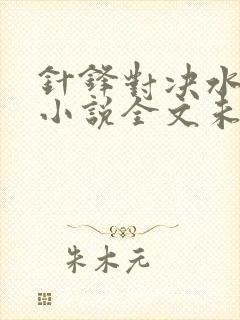 針鋒對決水
小説全文未
朱木元